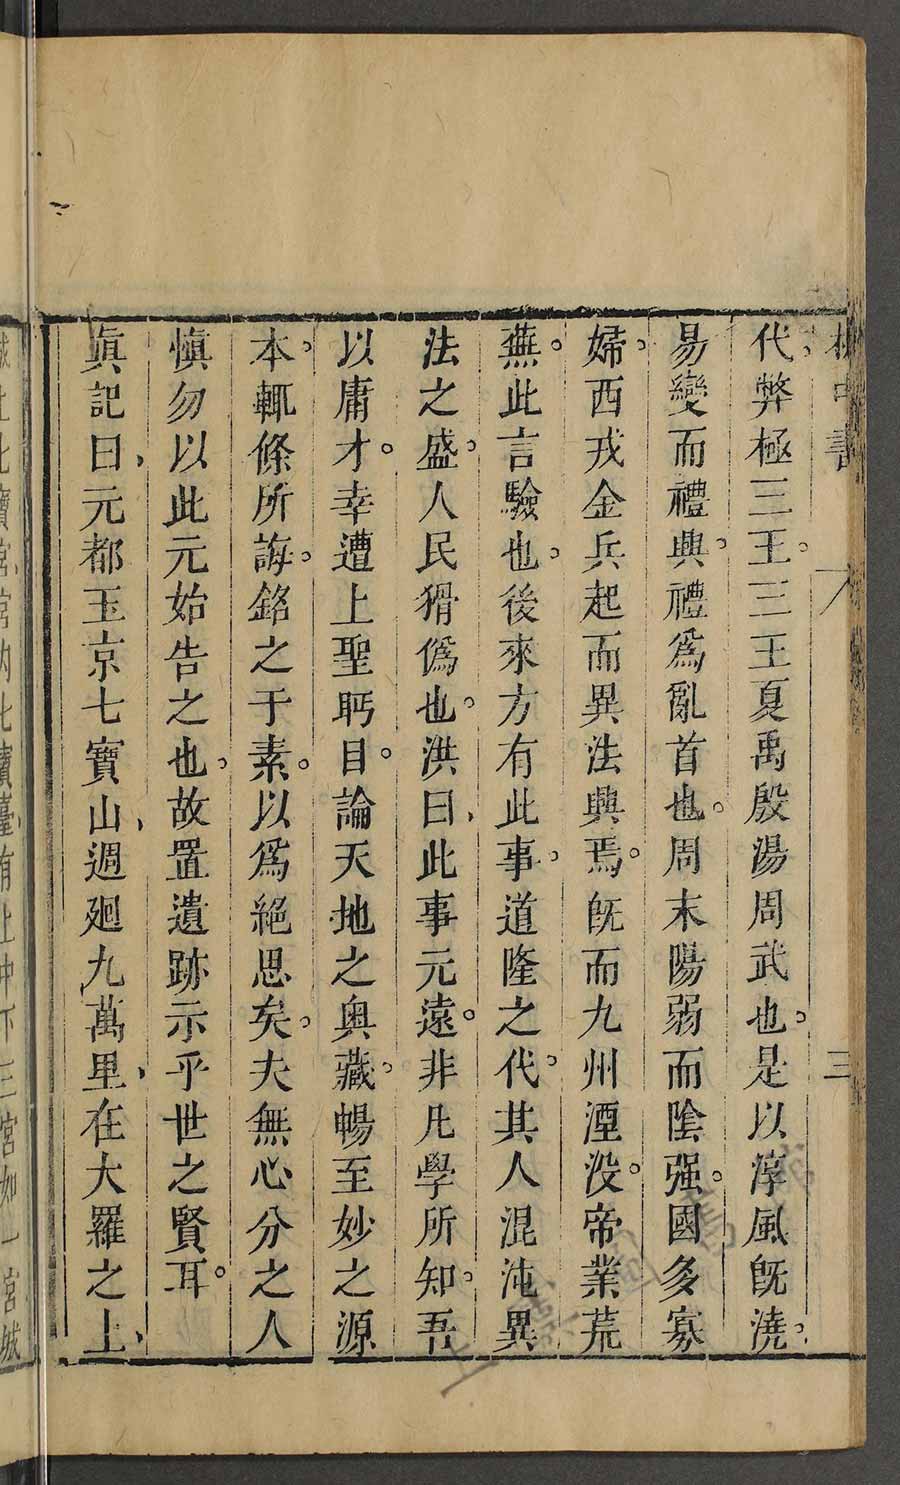 枕中書
三
代。弊極三王。三王夏禹殷湯周武也。是以淳風旣澆。
易變而禮興。禮爲亂首也。周末陽弱而陰强。國多寡
婦。西戎金兵起而異法興焉。旣而九州湮没。帝業荒
蕪。此言驗也。後來方有此事。道隆之代。其人混沌異
法之盛。人民猾僞也。洪曰、此事元遠。非凡學所知。吾
以庸才。幸遭上聖眄目。論天地之奥藏。暢至妙之源
本。輒條所誨。銘之于素。以爲絕思矣。夫無心分之人
愼勿以此元始告之也。故置遺跡示乎世之賢耳。
眞記曰、元都玉京七寶山、週廻九萬里、在大羅之上、
城上七寶宮宮内七寶臺有上中下三宮如一宮城